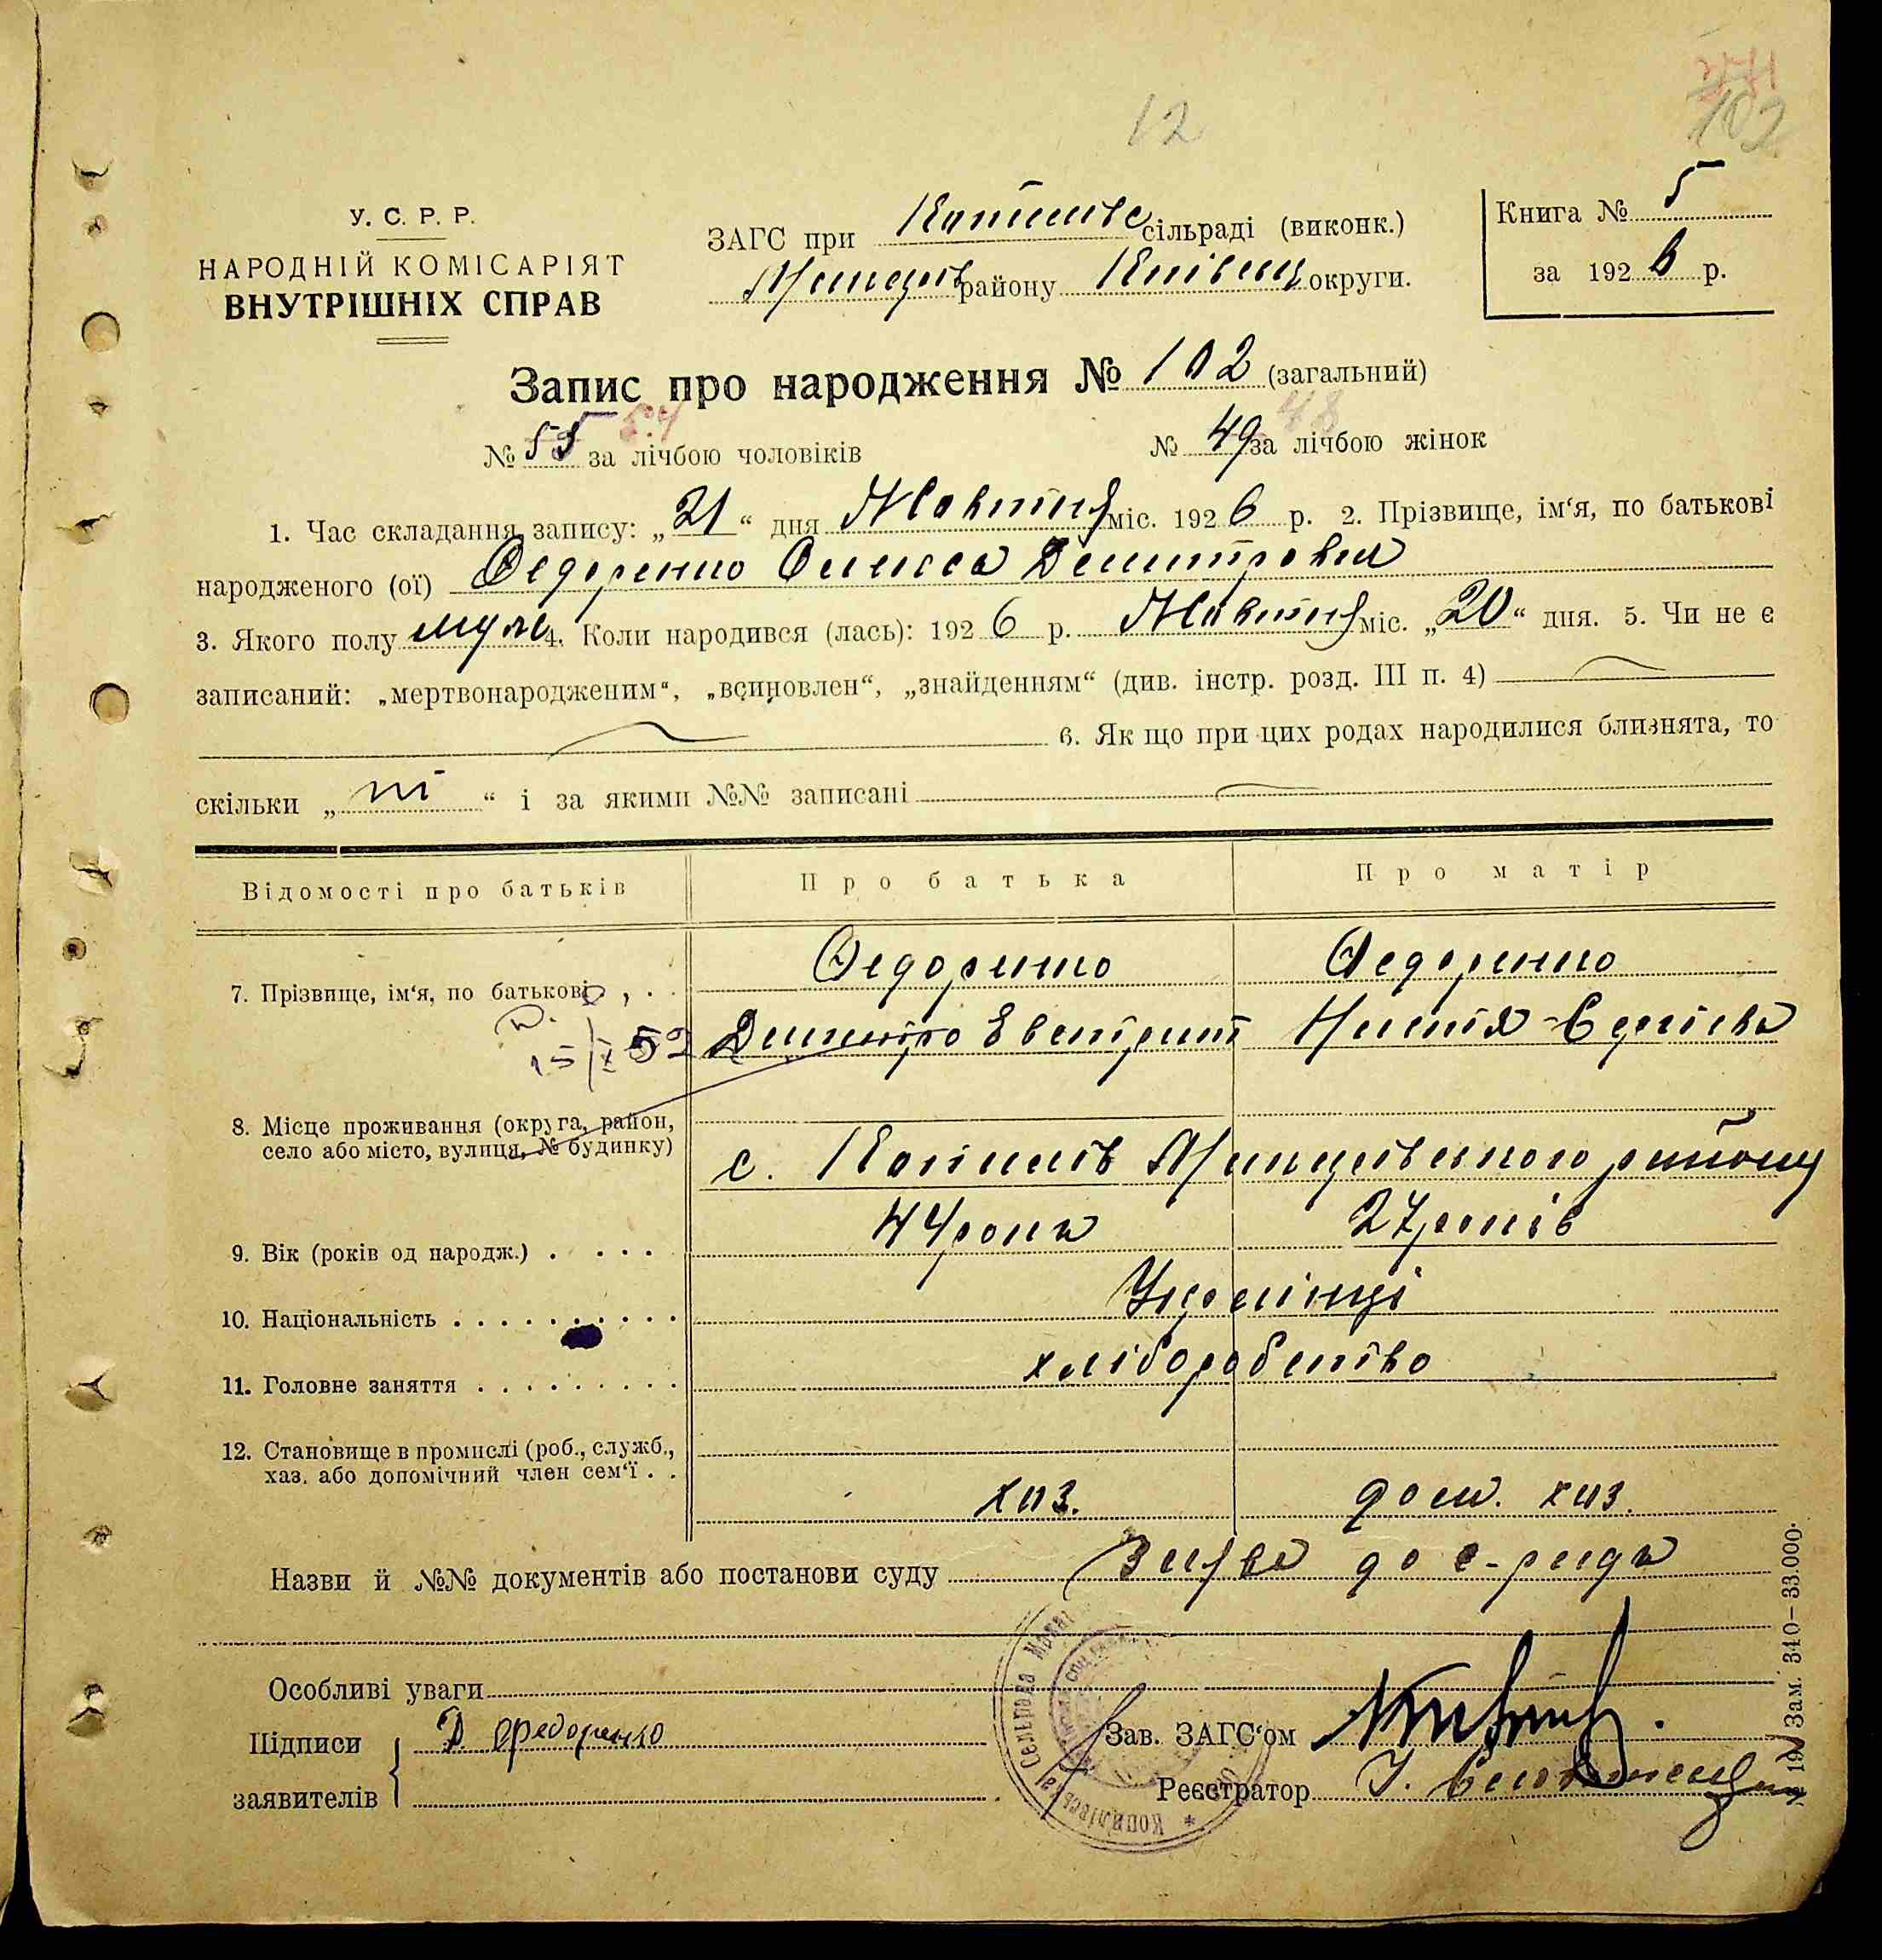 12
102
У. С. Р. Р.
НАРОДНІЙ КОМІСАРІЯТ
ВНУТРІШНІХ СПРАВ
ЗАГС при Копилівс сільраді (виконк.)
району Київськ округи.
Книга № 5
за 1926 р.
Запис про народження № 102 (загальний)
54 48
№ 55 за лічбою чоловіків № 49 за лічбою жінок
1. Час складання запису: „21“ дня Жовтня міс. 1926 р. 2. Прізвище, ім‘я, по батькові
народженого (ої) Федоренко Олекса Дмитрович
3. Якого полу муж 4. Коли народився (лась): 1926 р. Жовтня міс. „20“ дня. 5. Чи не є
записаний: „мертвонародженим“, „всиновлен“, „знайденням“ (див. інстр. розд. III п. 4)
6. Як що при цих родах народилися близнята, то
скільки „ні“ і за якими №№ записані
Відомості про батьків Про батька Про матір
7. Прізвище, ім‘я, по батькові Федоренко Федоренко
Дмитро
8. Місце проживання (округа, район,
село або місто, вулиця, № будинку) с. Копилів району
9. Вік (років од народж.) 44 роки 27 років
10. Національність Українці
11. Головне заняття хліборобство
12. Становище в промислі (роб., служб.,
хаз. або допомічний член сем‘ї хаз. дом. хаз.
Назви й №№ документів або постанови суду Заява до с-ради
Особливі уваги
Підписи
заявителів Д Федоренко
Зав. ЗАГС‘ом
Реєстратор
Зам. 340–33.000.